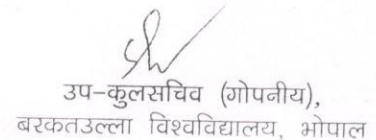 उप-कुलसचिव (गोपनीय),
बरकतउल्ला विश्वविद्यालय, भोपाल